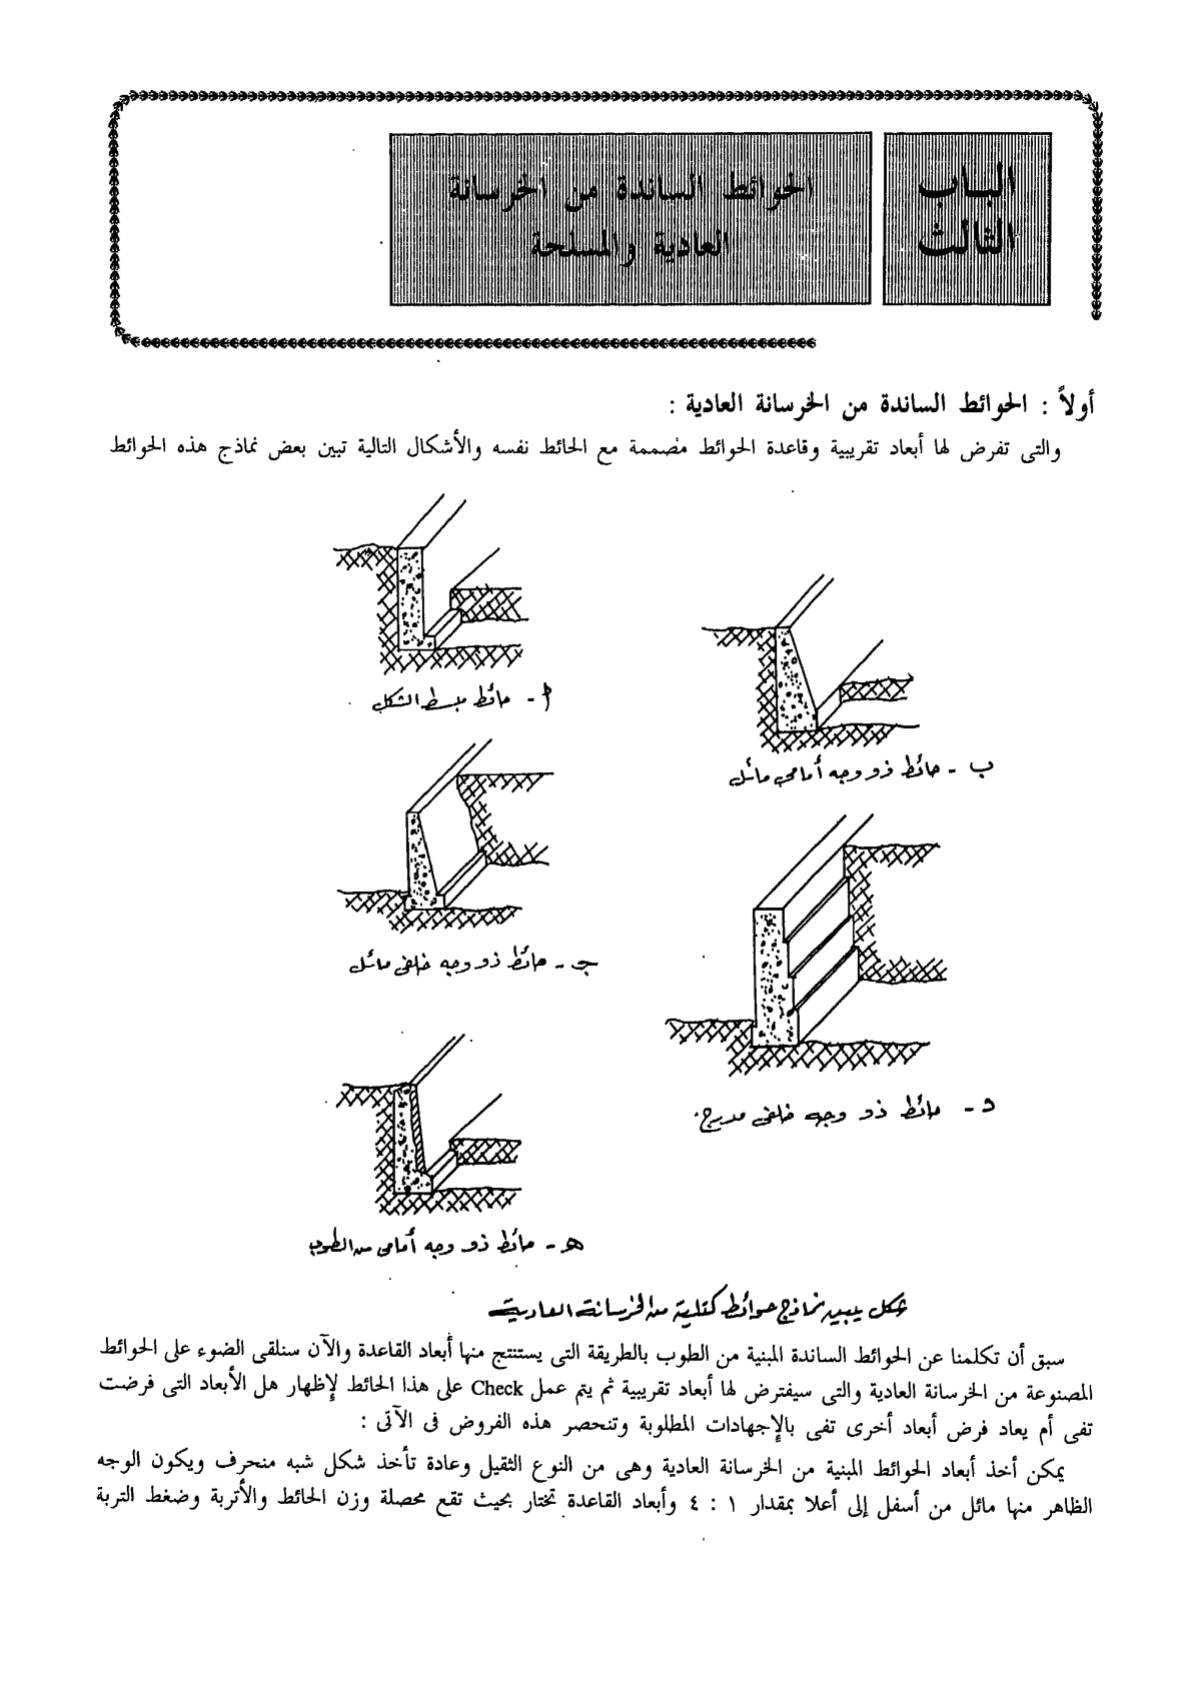 الباب
الثالث
الحوائط الساندة من الخرسانة
العادية والمسلحة
أولاً : الحوائط الساندة من الخرسانة العادية :
والتى تفرض لها أبعاد تقريبية وقاعدة الحوائط مصممة مع الحائط نفسه والأشكال التالية تبين بعض نماذج هذه الحوائط
أ - حائط مبسط الشكل
ب - حائط ذو وجه أمامى مائل
جـ - حائط ذو وجه خلفى مائل
د - حائط ذو وجه خلفى مدرج
هـ - حائط ذو وجه أمامى من الطوب
شكل يبين نماذج حوائط كتلية من الخرسانة العادية
سبق أن تكلمنا عن الحوائط الساندة المبنية من الطوب بالطريقة التى يستنتج منها أبعاد القاعدة والآن سنلقى الضوء على الحوائط
المصنوعة من الخرسانة العادية والتى سيفترض لها أبعاد تقريبية ثم يتم عمل Check على هذا الحائط لإظهار هل الأبعاد التى فرضت
تفى أم يعاد فرض أبعاد أخرى تفى بالإجهادات المطلوبة وتنحصر هذه الفروض فى الآتى :
يمكن أخذ أبعاد الحوائط المبنية من الخرسانة العادية وهى من النوع الثقيل وعادة تأخذ شكل شبه منحرف ويكون الوجه
الظاهر منها مائل من أسفل إلى أعلا بمقدار ١ : ٤ وأبعاد القاعدة تختار بحيث تقع محصلة وزن الحائط والأتربة وضغط التربة